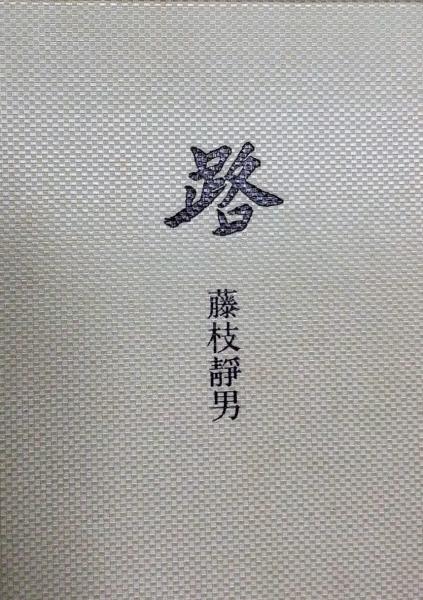 路
藤枝靜男